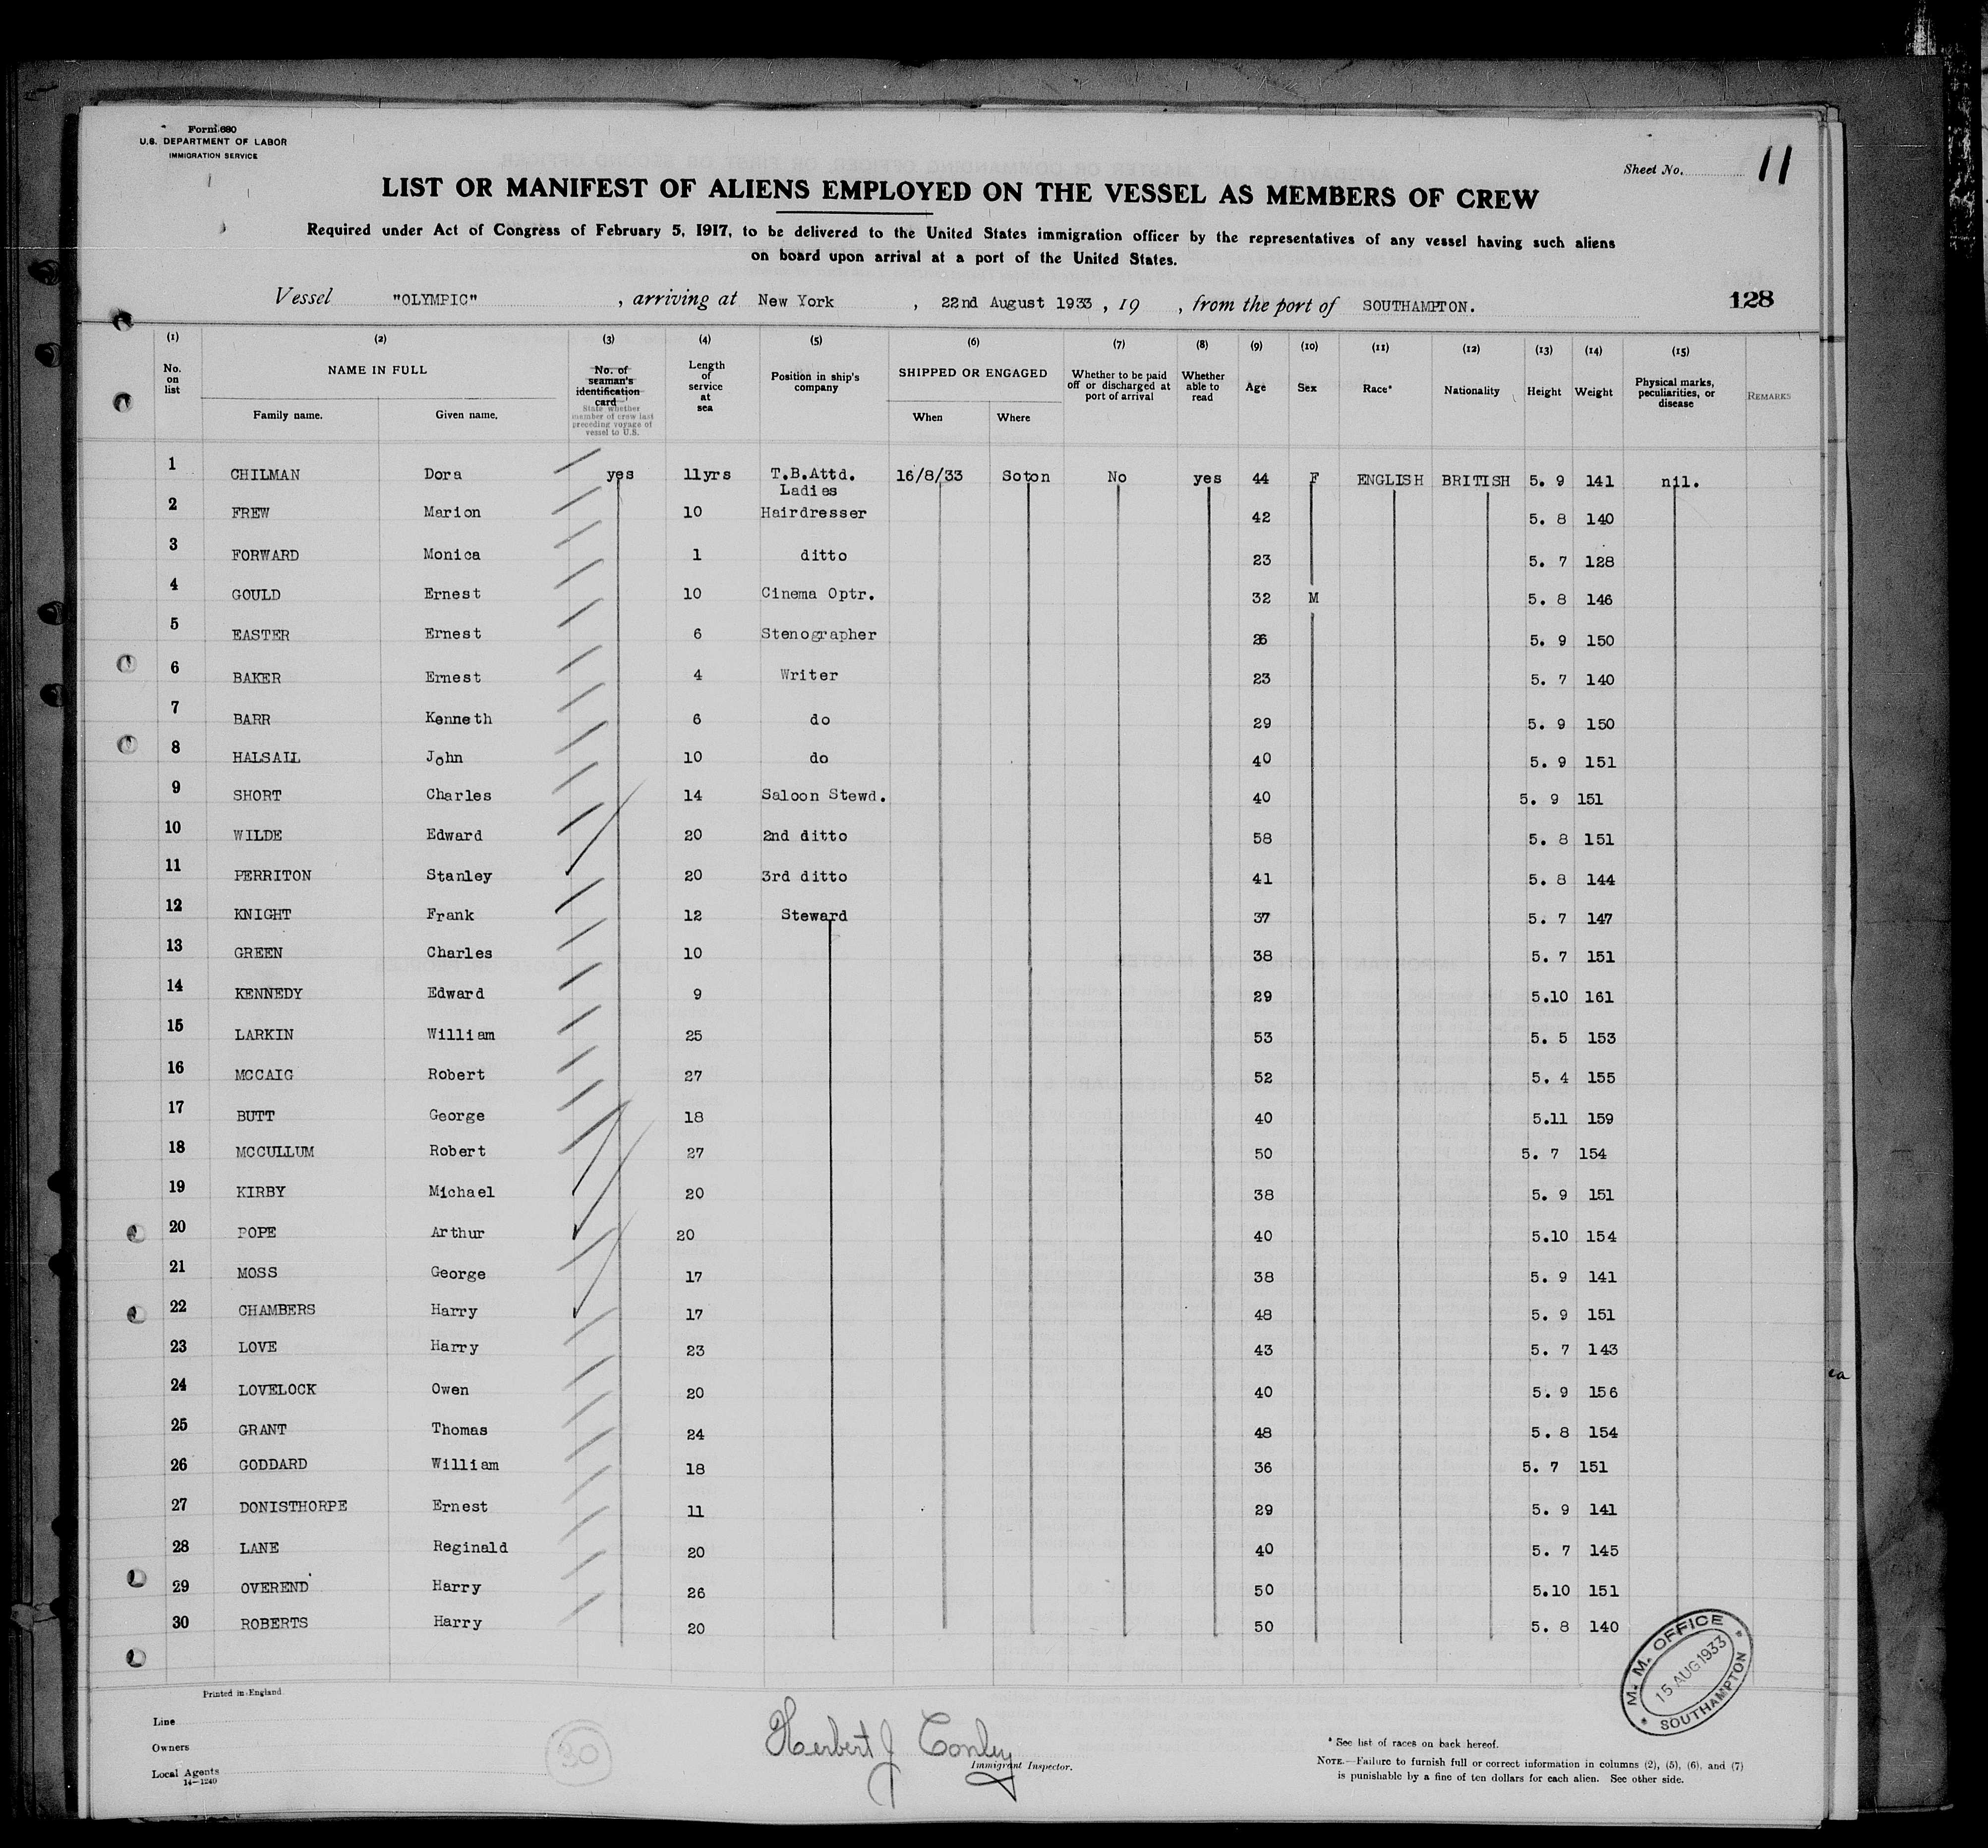 Form 680
U.S. DEPARTMENT OF LABOR
IMMIGRATION SERVICE
Sheet No. 11
LIST OR MANIFEST OF ALIENS EMPLOYED ON THE VESSEL AS MEMBERS OF CREW
Required under Act of Congress of February 5, 1917, to be delivered to the United States immigration officer by the representatives of any vessel having such aliens
on board upon arrival at a port of the United States.
Vessel "OLYMPIC" , arriving at New York , 22nd August 1933 , 19 , from the port of SOUTHAMPTON. 128
(1) (2) (3) (4) (5) (6) (7) (8) (9) (10) (11) (12) (13) (14) (15)
No. on list NAME IN FULL Family name. Given name. No. of seaman's identification card State whether member of crew last preceding voyage of vessel to U.S. Length of service at sea Position in ship's company SHIPPED OR ENGAGED When Where Whether to be paid off or discharged at port of arrival Whether able to read Age Sex Race* Nationality Height Weight Physical marks, peculiarities, or disease REMARKS
1 CHILMAN Dora yes 11yrs T.B.Attd. 16/8/33 Soton No yes 44 F ENGLISH BRITISH 5. 9 141 nil.
2 FREW Marion 10 Ladies Hairdresser 42 5. 8 140
3 FORWARD Monica 1 ditto 23 5. 7 128
4 GOULD Ernest 10 Cinema Optr. 32 M 5. 8 146
5 EASTER Ernest 6 Stenographer 26 5. 9 150
6 BAKER Ernest 4 Writer 23 5. 7 140
7 BARR Kenneth 6 do 29 5. 9 150
8 HALSALL John 10 do 40 5. 9 151
9 SHORT Charles 14 Saloon Stewd. 40 5. 9 151
10 WILDE Edward 20 2nd ditto 58 5. 8 151
11 PERRITON Stanley 20 3rd ditto 41 5. 8 144
12 KNIGHT Frank 12 Steward 37 5. 7 147
13 GREEN Charles 10 38 5. 7 151
14 KENNEDY Edward 9 29 5.10 161
15 LARKIN William 25 53 5. 5 153
16 MCCAIG Robert 27 52 5. 4 155
17 BUTT George 18 40 5.11 159
18 MCCULLUM Robert 27 50 5. 7 154
19 KIRBY Michael 20 38 5. 9 151
20 POPE Arthur 20 40 5.10 154
21 MOSS George 17 38 5. 9 141
22 CHAMBERS Harry 17 48 5. 9 151
23 LOVE Harry 23 43 5. 7 143
24 LOVELOCK Owen 20 40 5. 9 156
25 GRANT Thomas 24 48 5. 8 154
26 GODDARD William 18 36 5. 7 151
27 DONISTHORPE Ernest 11 29 5. 9 141
28 LANE Reginald 20 40 5. 7 145
29 OVEREND Harry 26 50 5.10 151
30 ROBERTS Harry 20 50 5. 8 140
M. M. OFFICE
15 AUG 1933
SOUTHAMPTON
Printed in England
Line
Owners
Local Agents
14-1240
30
Herbert J Conley
Immigrant Inspector.
* See list of races on back hereof.
NOTE.—Failure to furnish full or correct information in columns (2), (5), (6), and (7)
is punishable by a fine of ten dollars for each alien. See other side.